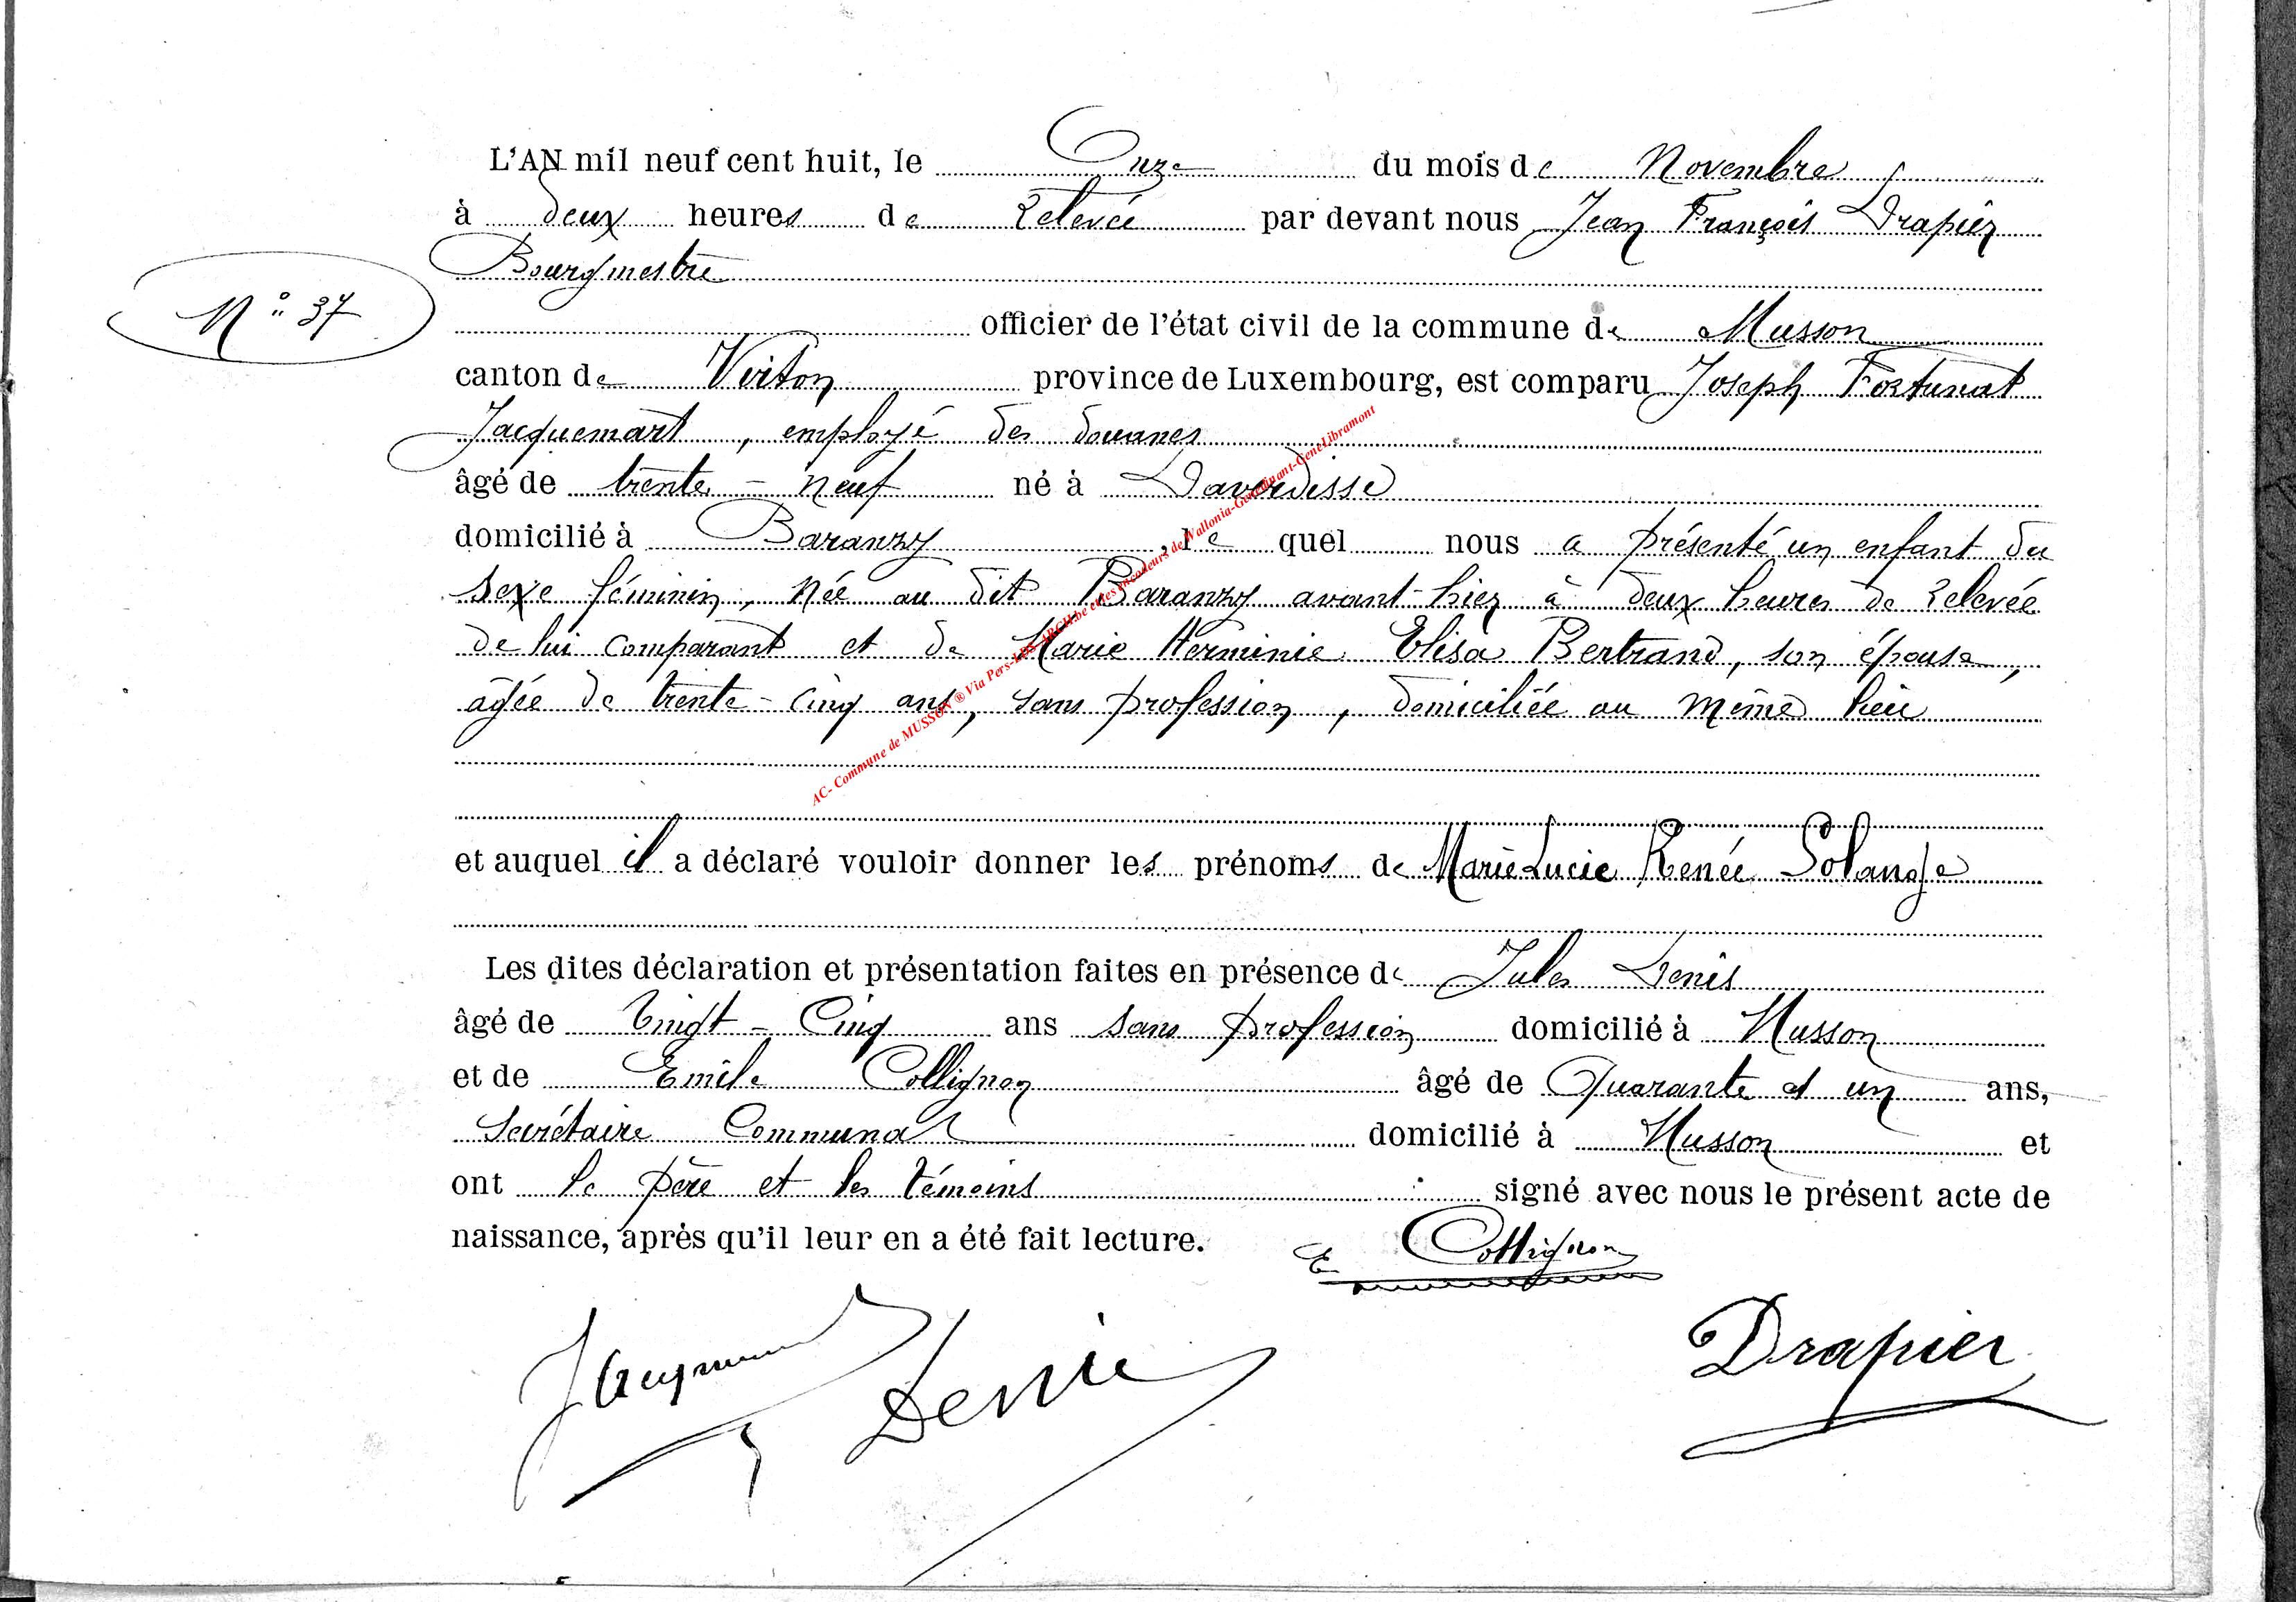 L'AN mil neuf cent huit, le Onze du mois de Novembre
à deux heures de Relevée par devant nous Jean François Drapier
Bourgmestre
N° 37
officier de l'état civil de la commune de Musson
canton de Virton province de Luxembourg, est comparu Joseph Fortunat
Jacquemart, employé des douanes
âgé de trente-neuf né à Daverdisse
domicilié à Baranzy, le quel nous a présenté un enfant du
sexe féminin, née au dit Baranzy avant-hier à deux heures de Relevée
de lui comparant et de Marie Herminie Elisa Bertrand, son épouse,
âgée de trente-cinq ans, sans profession, domiciliée au même lieu
et auquel il a déclaré vouloir donner les prénoms de Marie Lucie Renée Solange
Les dites déclaration et présentation faites en présence de Jules Denis
âgé de Vingt-Cinq ans sans profession domicilié à Musson
et de Emile Collignon âgé de Quarante et un ans,
Secrétaire Communal domicilié à Musson et
ont le père et les témoins signé avec nous le présent acte de
naissance, après qu'il leur en a été fait lecture.
E Collignon
Jacquemart
Denis
Drapier
AC- Commune de MUSSON ® Via Pers- ARCH.be et les encodeurs de Wallonia-GeneDinant-GeneLibramont